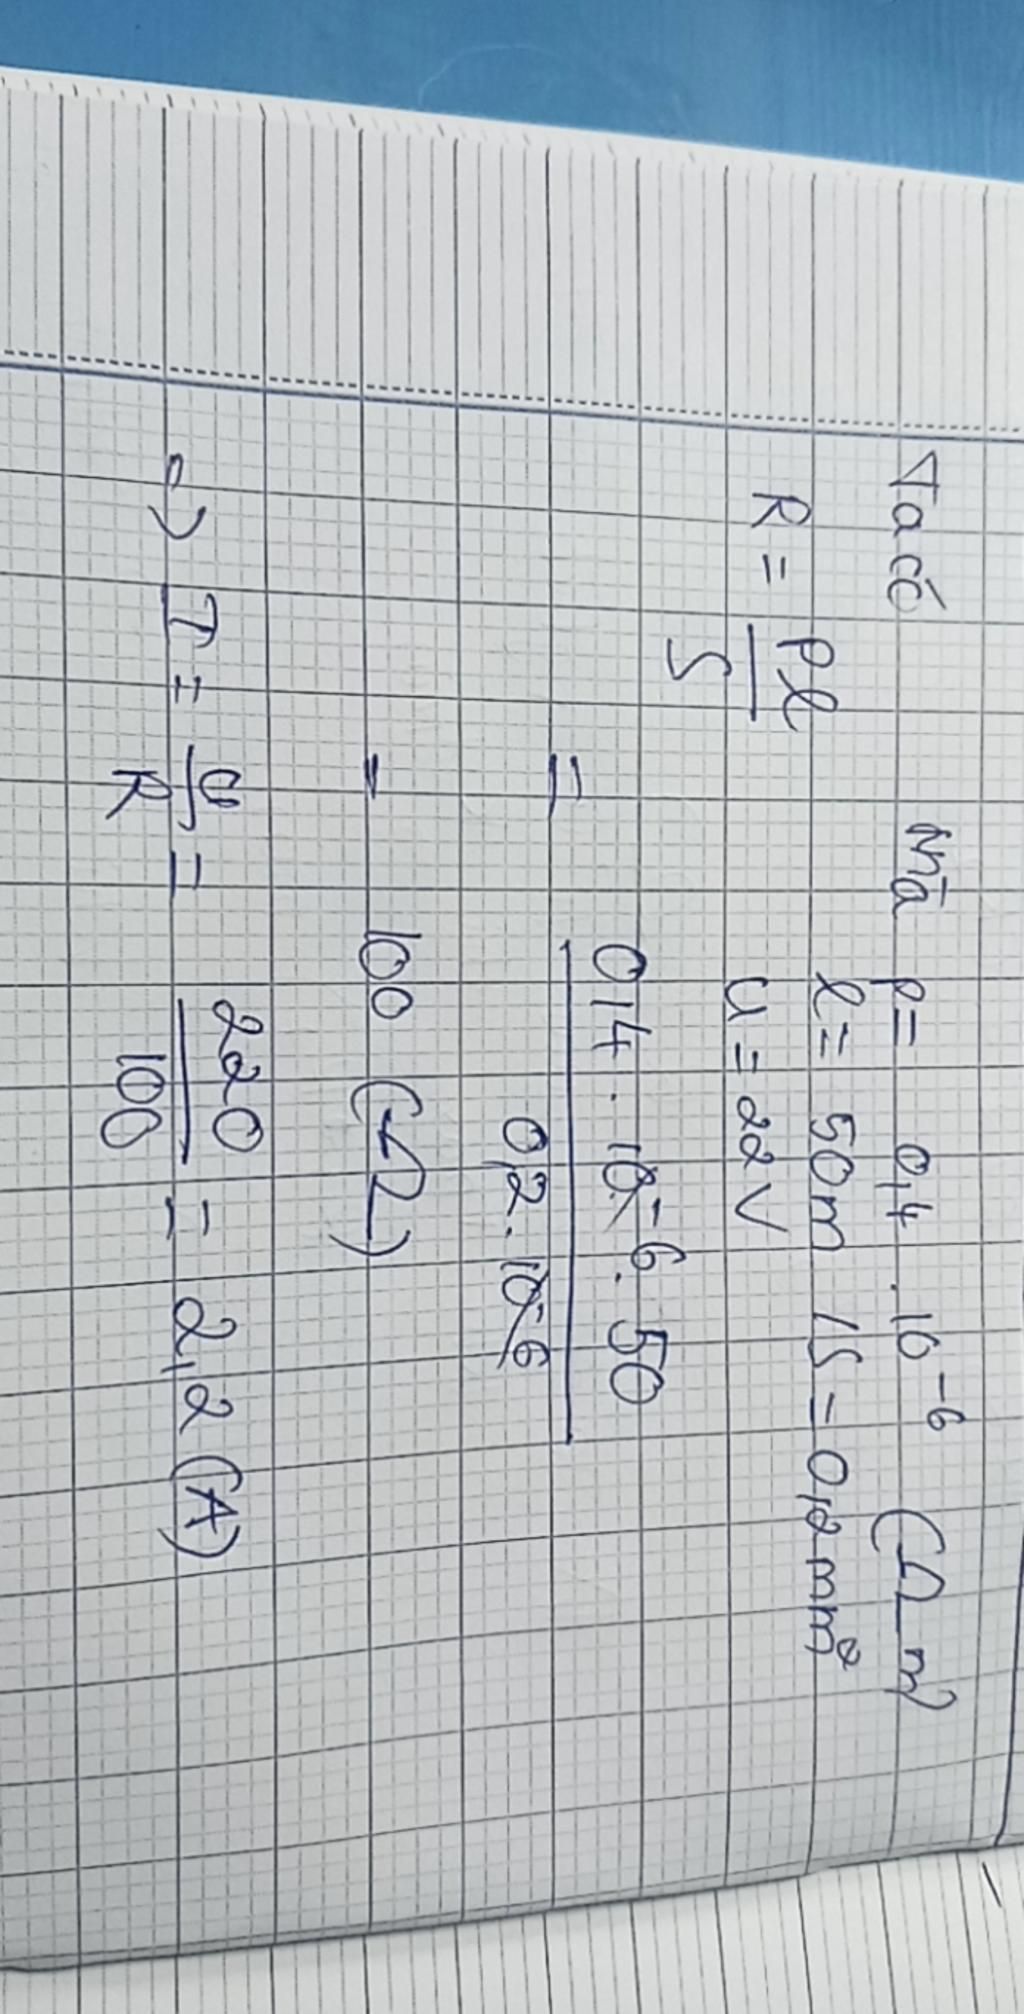 Ta có mà ρ = 0,4 . 10^-6 (Ω m)
l = 50m /S = 0,2 mm²
R = ρl/S U = 22 V
= 0,4 . 10^-6 . 50 / 0,2 . 10^-6
= 100 (Ω)
=> I = U/R = 220/100 = 2,2 (A)